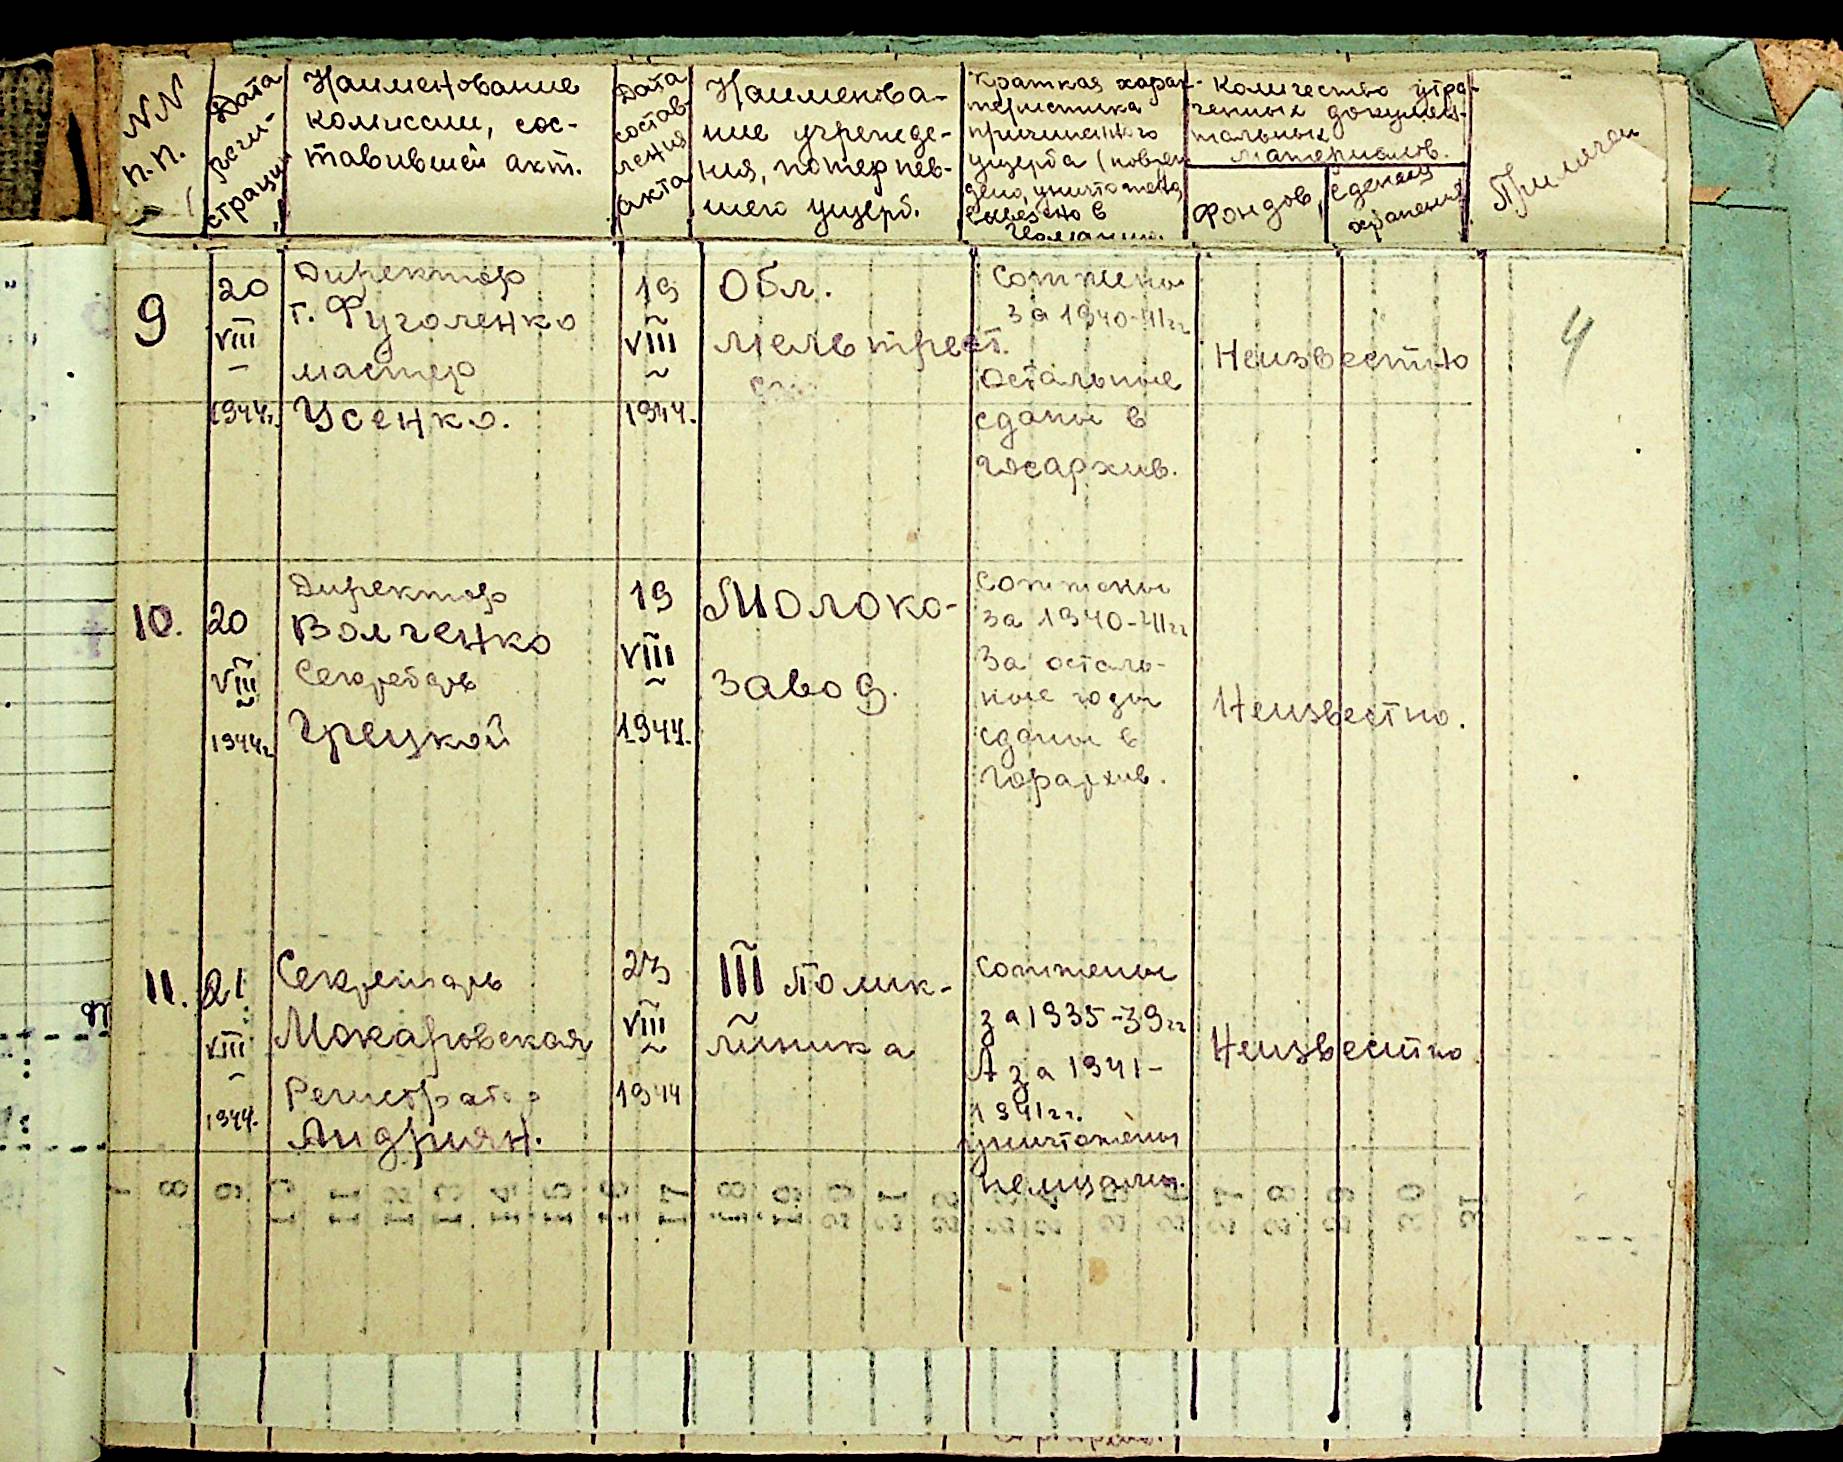 NN п.п.
Дата реги-страции
Наименование
комиссии, сос-
тавившей акт.
Дата
состав
ления
акта
Наименова-
ние учрежде-
ния, потерпев-
шего ущерб.
Краткая харак-
теристика
причиненного
ущерба (повреж
дено, уничтожено,
вывезено в
Германию
Количество утра-
ченных докумен-
тальных
материалов.
Фондов,
Единиц
хранения
Примечан
9
20
VIII
1944г.
Директор
г. Фуголенко
мастер
Усенко.
19
VIII
1944.
Обл.
мельтрест.
Сожжены
за 1940-41гг
остальные
сданы в
госархив.
Неизвестно
4
10.
20
VIII
1944г
Директор
Волченко
Секретарь
Грецкой
19
VIII
1944.
Молоко-
завод.
Сожжены
за 1940-41гг
За осталь-
ные годы
сданы в
горархив.
Неизвестно.
11.
21
VIII
1944.
Секретарь
Мокаровская
Регистратор
Андриян.
23
VIII
1944
III Полик-
линика
Сожжены
за 1935-39гг
А за 1941-
1941гг.
уничтожены
немцами.
Неизвестно
8
9
10
11
12
13
14
15
16
17
18
19
20
21
22
27
28
29
30
31